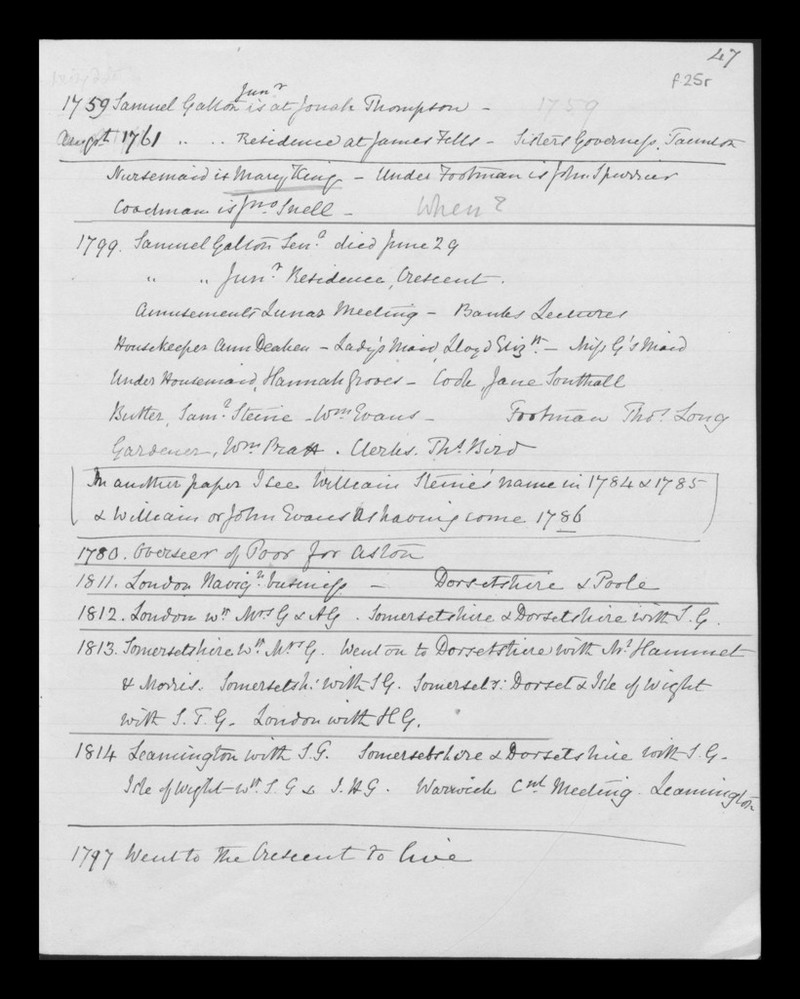 47
f25r
Junr
1759 Samuel Galton is at Jonah Thompson – 1759
Augst 1761 " .. Residence at James Fells – Sisters Governess, Taunton
Nursemaid is Mary King – Under Footman is John Spurrier
Coachman is Jno Snell – When?
1799. Samuel Galton Senr died June 29
" " Junr Residence, Crescent.
Amusements Lunar Meeting – Banks Lectures
Housekeeper Ann Deaken – Lady's Maid, Lloyd Elizth. – Miss G's Maid
Under Housemaid, Hannah Groves – Cook, Jane Southall
Butler, Saml Steine – Wm Evans – Footman Thos Long
Gardener, Wm Pratt. Clerks. Ths Bird
In another paper I see William Steine's name in 1784 & 1785
& William or John Evans as having come 1786
1780. Overseer of Poor for Aston
1811. London Navign business – Dorsetshire & Poole
1812. London wh Mrs G & AG. Somersetshire & Dorsetshire with S.G.
1813. Somersetshire wh Mrs G. Went on to Dorsetshire with Mr Hammet
& Morris. Somersetsh: with SG. Somersets: Dorset & Isle of Wight
with S.T.G. London with HG.
1814 Leamington with S.G. Somersetshire & Dorsetshire with S.G.
Isle of Wight wh S G & J.H G. Warwick Cnl Meeting. Leamington
1797 Went to The Crescent to live